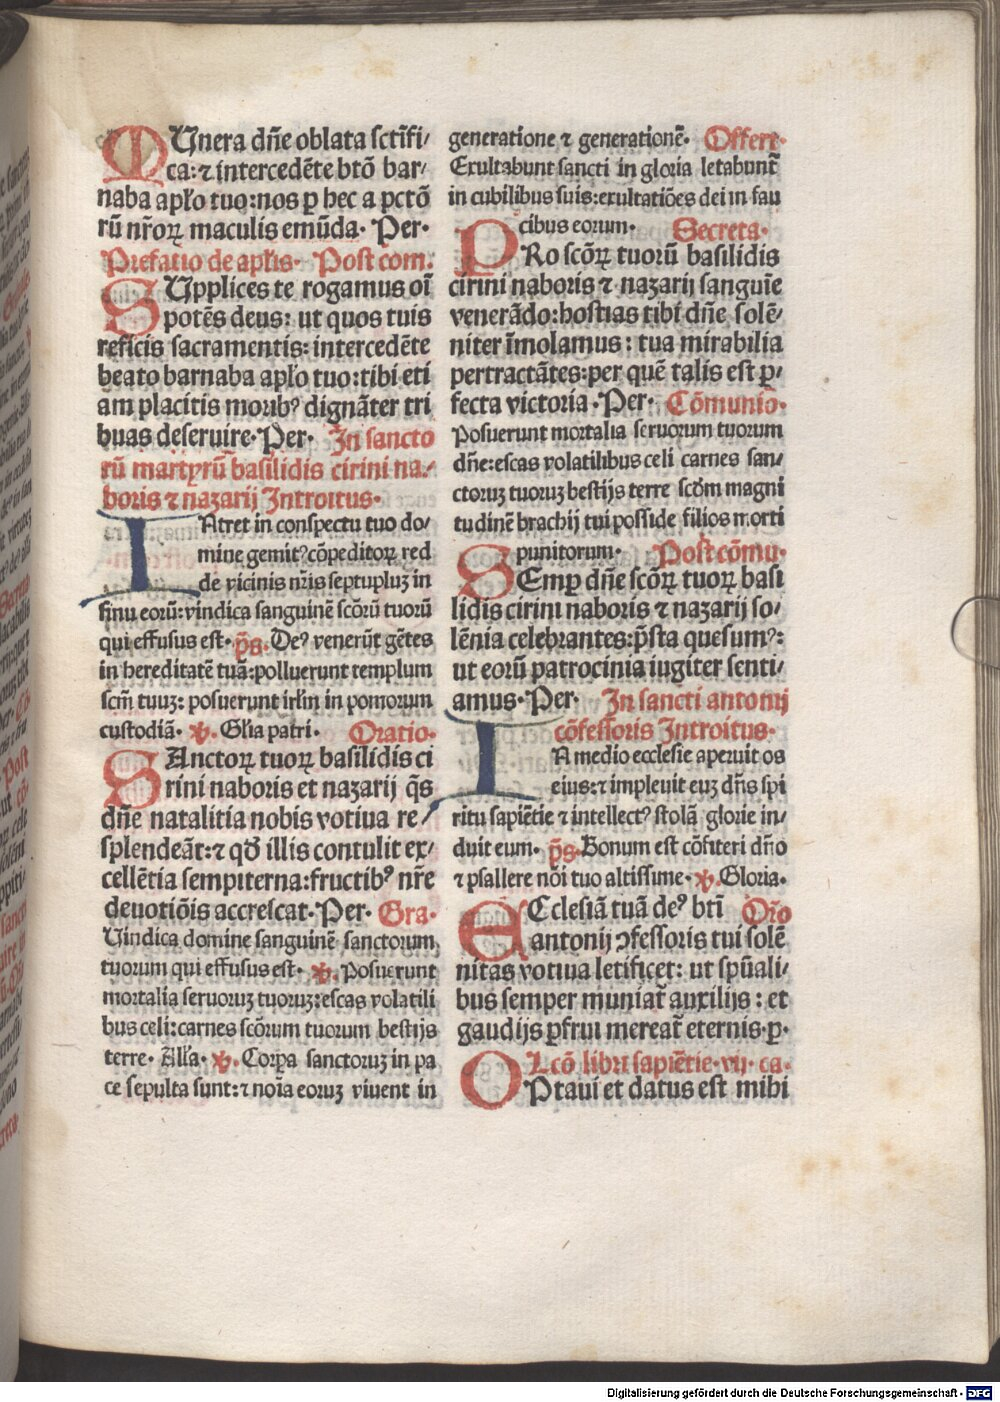 MUnera dñe oblata sctĩfi/
ca: ⁊ intercedẽte btõ bar/
naba apło tuo: nos ꝑ hec a pctõ
rũ nr̃oꝝ maculis emũda. Per.
Prefatio de aplis. Post com.
SUpplices te rogamus oĩ
potẽs deus: ut quos tuis
reficis sacramentis: intercedẽte
beato barnaba apło tuo: tibi eti
am placitis moribꝰ dignãter tri
buas deseruire. Per. In sancto
rũ martyrũ basilidis cirini na/
boris ⁊ nazarij Introitus.
INtret in conspectu tuo do/
mine gemitꝰ cõpeditoꝝ red
de vicinis nr̃is septupluz in
sinu eorũ: vindica sanguinẽ scõrũ tuorũ
qui effusus est. p̃s. Deꝰ venerũt gẽtes
in hereditatẽ tuã: polluerunt templum
scm̃ tuuz: posuerunt irłm in pomorum
custodiã. ℣. Głia patri. Oratio.
SAnctoꝝ tuoꝝ basilidis ci
rini naboris et nazarij q̃s
dñe natalitia nobis votiua re/
splendeãt: ⁊ qđ illis contulit ex/
cellẽtia sempiterna: fructibꝰ nr̃e
deuotiõis accrescat. Per. Gra.
Uindica domine sanguinẽ sanctorum
tuorum qui effusus est. ℣. Posuerunt
mortalia seruoruz tuoruz: escas volatili
bus celi: carnes scõrum tuorum bestijs
terre. Ałła. ℣. Corꝑa sanctoruz in pa
ce sepulta sunt: ⁊ noĩa eoruz viuent in
generatione ⁊ generationẽ. Offert.
Exultabunt sancti in gloria letabunt̃
in cubilibus suis: exultatiões dei in fau
cibus eorum. Secreta.
PRo scõꝝ tuorũ basilidis
cirini naboris ⁊ nazarij sanguĩe
venerãdo: hostias tibi dñe solẽ/
niter ĩmolamus: tua mirabilia
pertractãtes: per quẽ talis est ꝑ/
fecta victoria. Per. Cõmunio.
Posuerunt mortalia seruorum tuorum
dñe: escas volatilibus celi carnes san/
ctoruz tuoruz bestijs terre scđm magni
tudinẽ brachij tui posside filios morti
punitorum. Post cõmu.
SEmꝑ dñe scõꝝ tuoꝝ basi
lidis cirini naboris ⁊ nazarij so/
lẽnia celebrantes: p̃sta quesumꝰ:
ut eorũ patrocinia iugiter senti/
amus. Per. In sancti antonij
cõfessoris Introitus.
IN medio ecclesie aperuit os
eius: ⁊ impleuit euz dñs spi
ritu sapiẽtie ⁊ intellectꝰ stolã glorie in/
duit eum. p̃s. Bonum est cõfiteri dño
⁊ psallere nõi tuo altissime. ℣. Gloria.
ECclesiã tuã deꝰ btĩ Orõ
antonij ꝯfessoris tui solẽ
nitas votiua letificet: ut spũali/
bus semper muniat̃ auxilijs: et
gaudijs ꝑfrui mereat̃ eternis. ꝑ.
Lcõ libri sapiẽtie. vij. ca.
OPtaui et datus est mihi
Digitalisierung gefördert durch die Deutsche Forschungsgemeinschaft - DFG